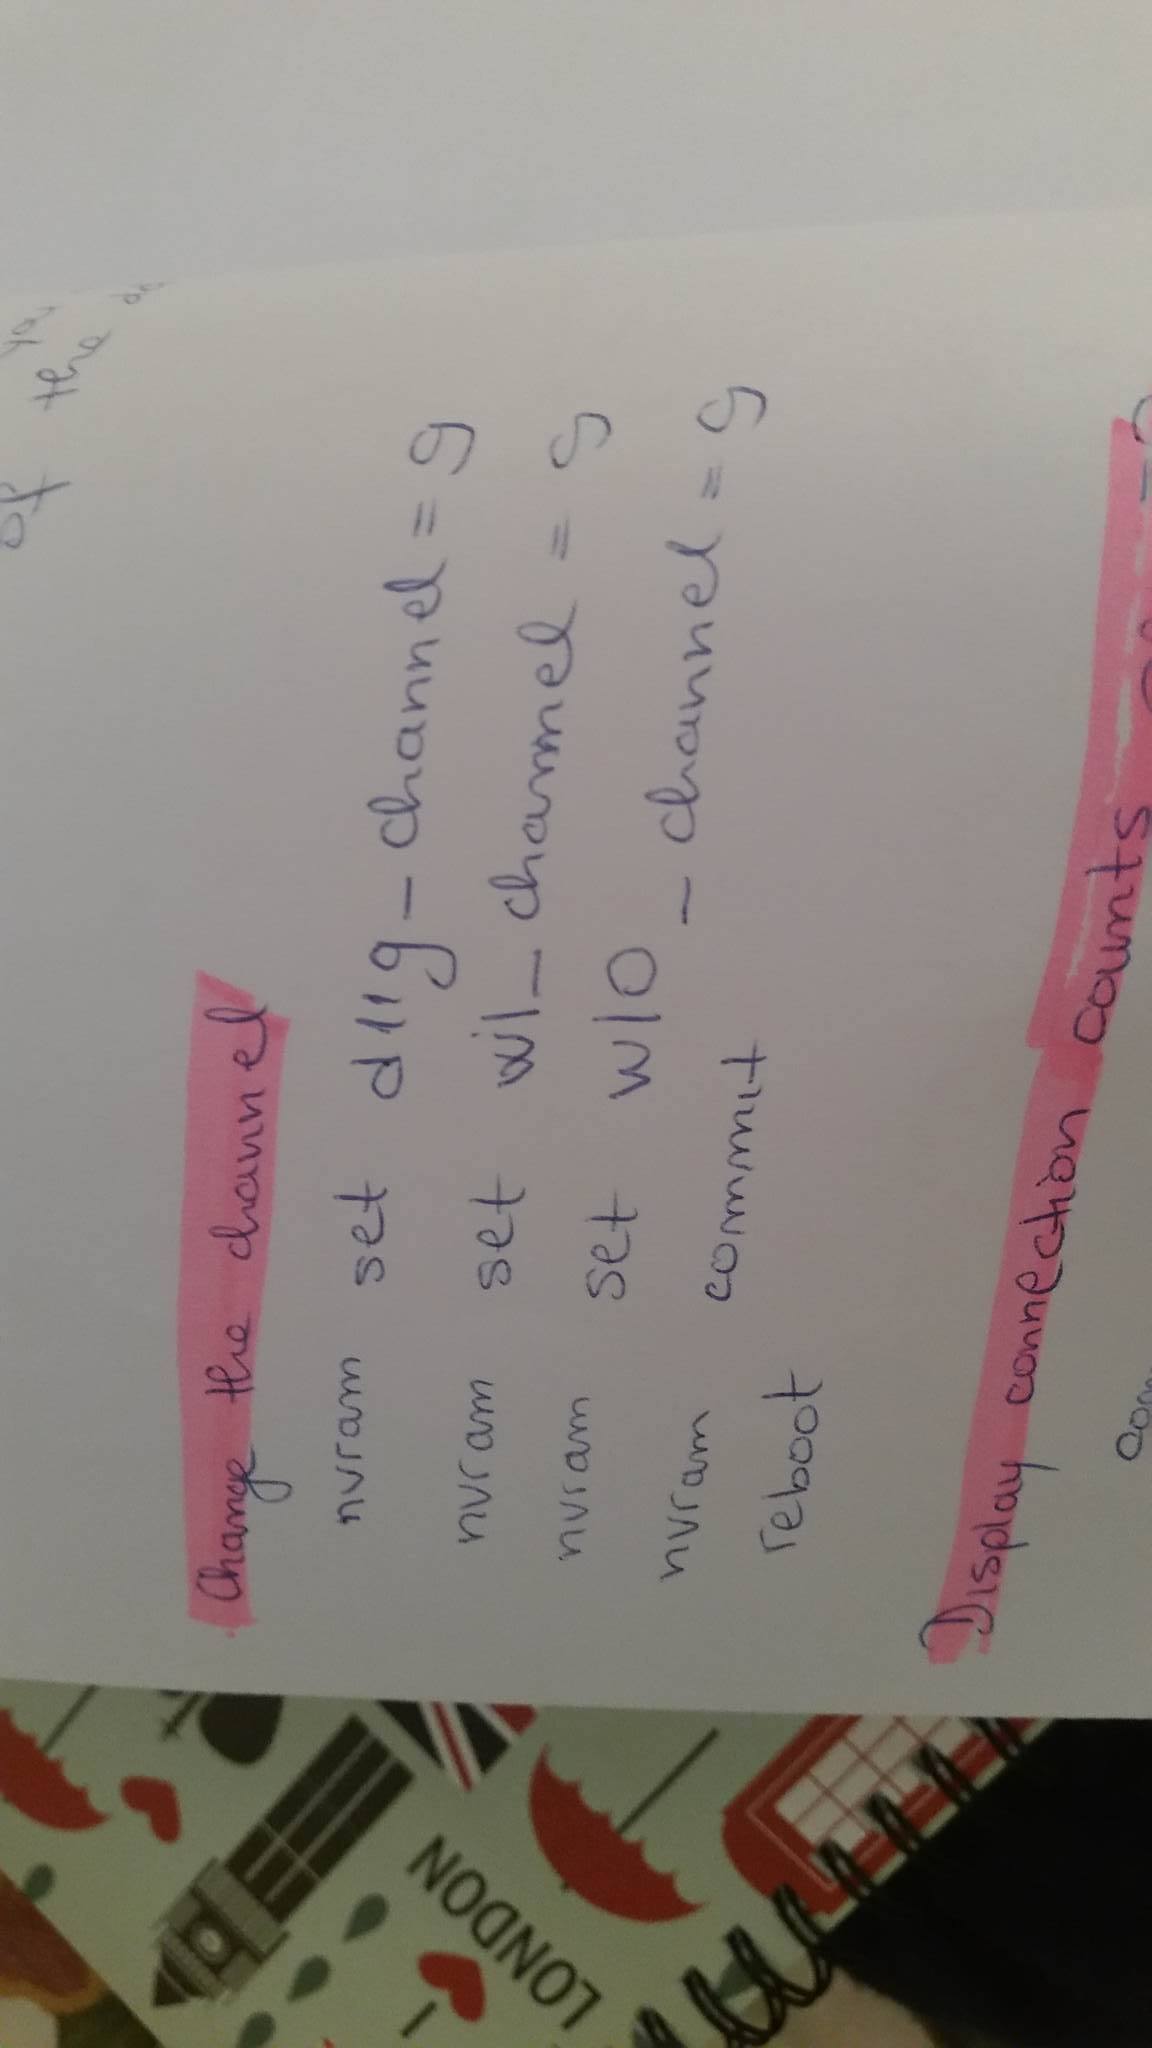 of the
Change the channel
nvram set d11g_channel=9
nvram set wl_channel=9
nvram set wl0_channel=9
nvram commit
reboot
Display connection counts
I
LONDON